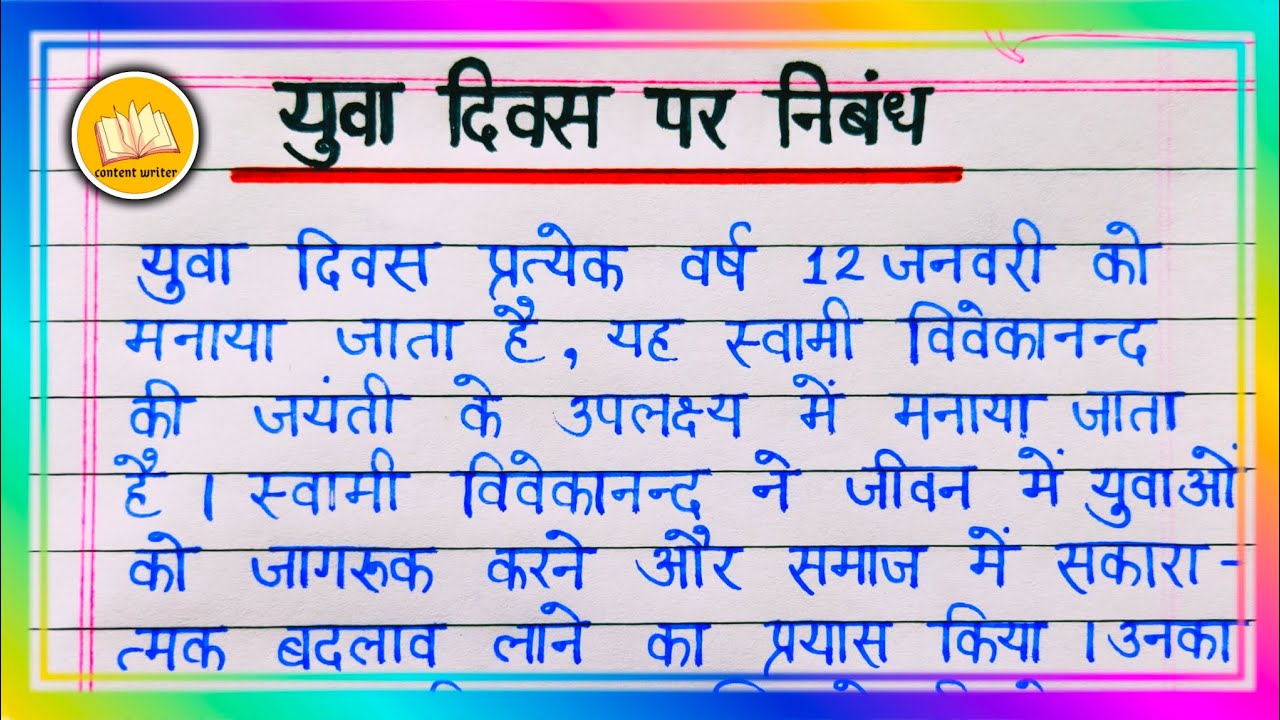 युवा दिवस पर निबंध
content writer
युवा दिवस प्रत्येक वर्ष 12 जनवरी को
मनाया जाता है, यह स्वामी विवेकानन्द
की जयंती के उपलक्ष्य में मनाया जाता
है । स्वामी विवेकानन्द ने जीवन में युवाओं
को जागरूक करने और समाज में सकारा-
त्मक बदलाव लाने का प्रयास किया । उनका